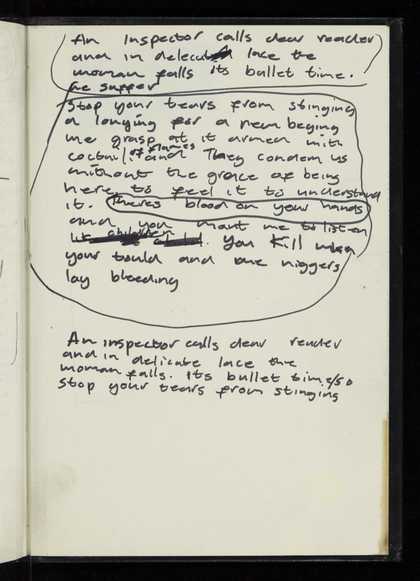 An Inspector calls dear reader
and in delecut lace the
woman falls its bullet time.
we suffer
Stop your tears from stinging
a longing for a new begining
we grasp at it armed with
coctail of flames and They condem us
without the grace of being
here to feel it to understand
it. Theres blood on your hands
and you want me to listen
lik children. You kill when
your told and we niggers
lay bleeding
An inspector calls dear reader
and in delicate lace the
woman falls. Its bullet time/so
stop your tears from stinging